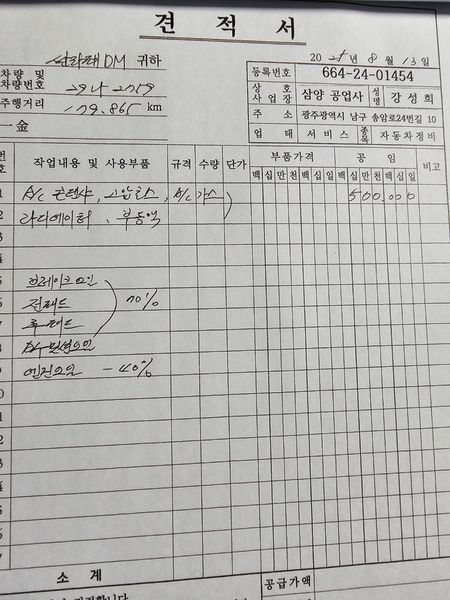 견적서
싼타페DM 귀하
2025년 8월 13일
차량 및
차량번호 29나 2759
주행거리 179.865 km
一金
등록번호 664-24-01454
상호
사업장 삼양 공업사 성명 강성희
주소 광주광역시 남구 송암로24번길 10
업태 서비스 종목 자동차정비
번호 작업내용 및 사용부품 규격 수량 단가 부품가격 공임 비고
백십만천백십일 백십만천백십일
1 A/C 콘덴샤, 고압호스, A/C 가스 500.000
2 라디에이터, 부동액
3
4
5 브레이크오일
6 전패드 70%
7 후패드
8 오토밋션오일
9 엔진오일 - 40%
10
소계
공급가액